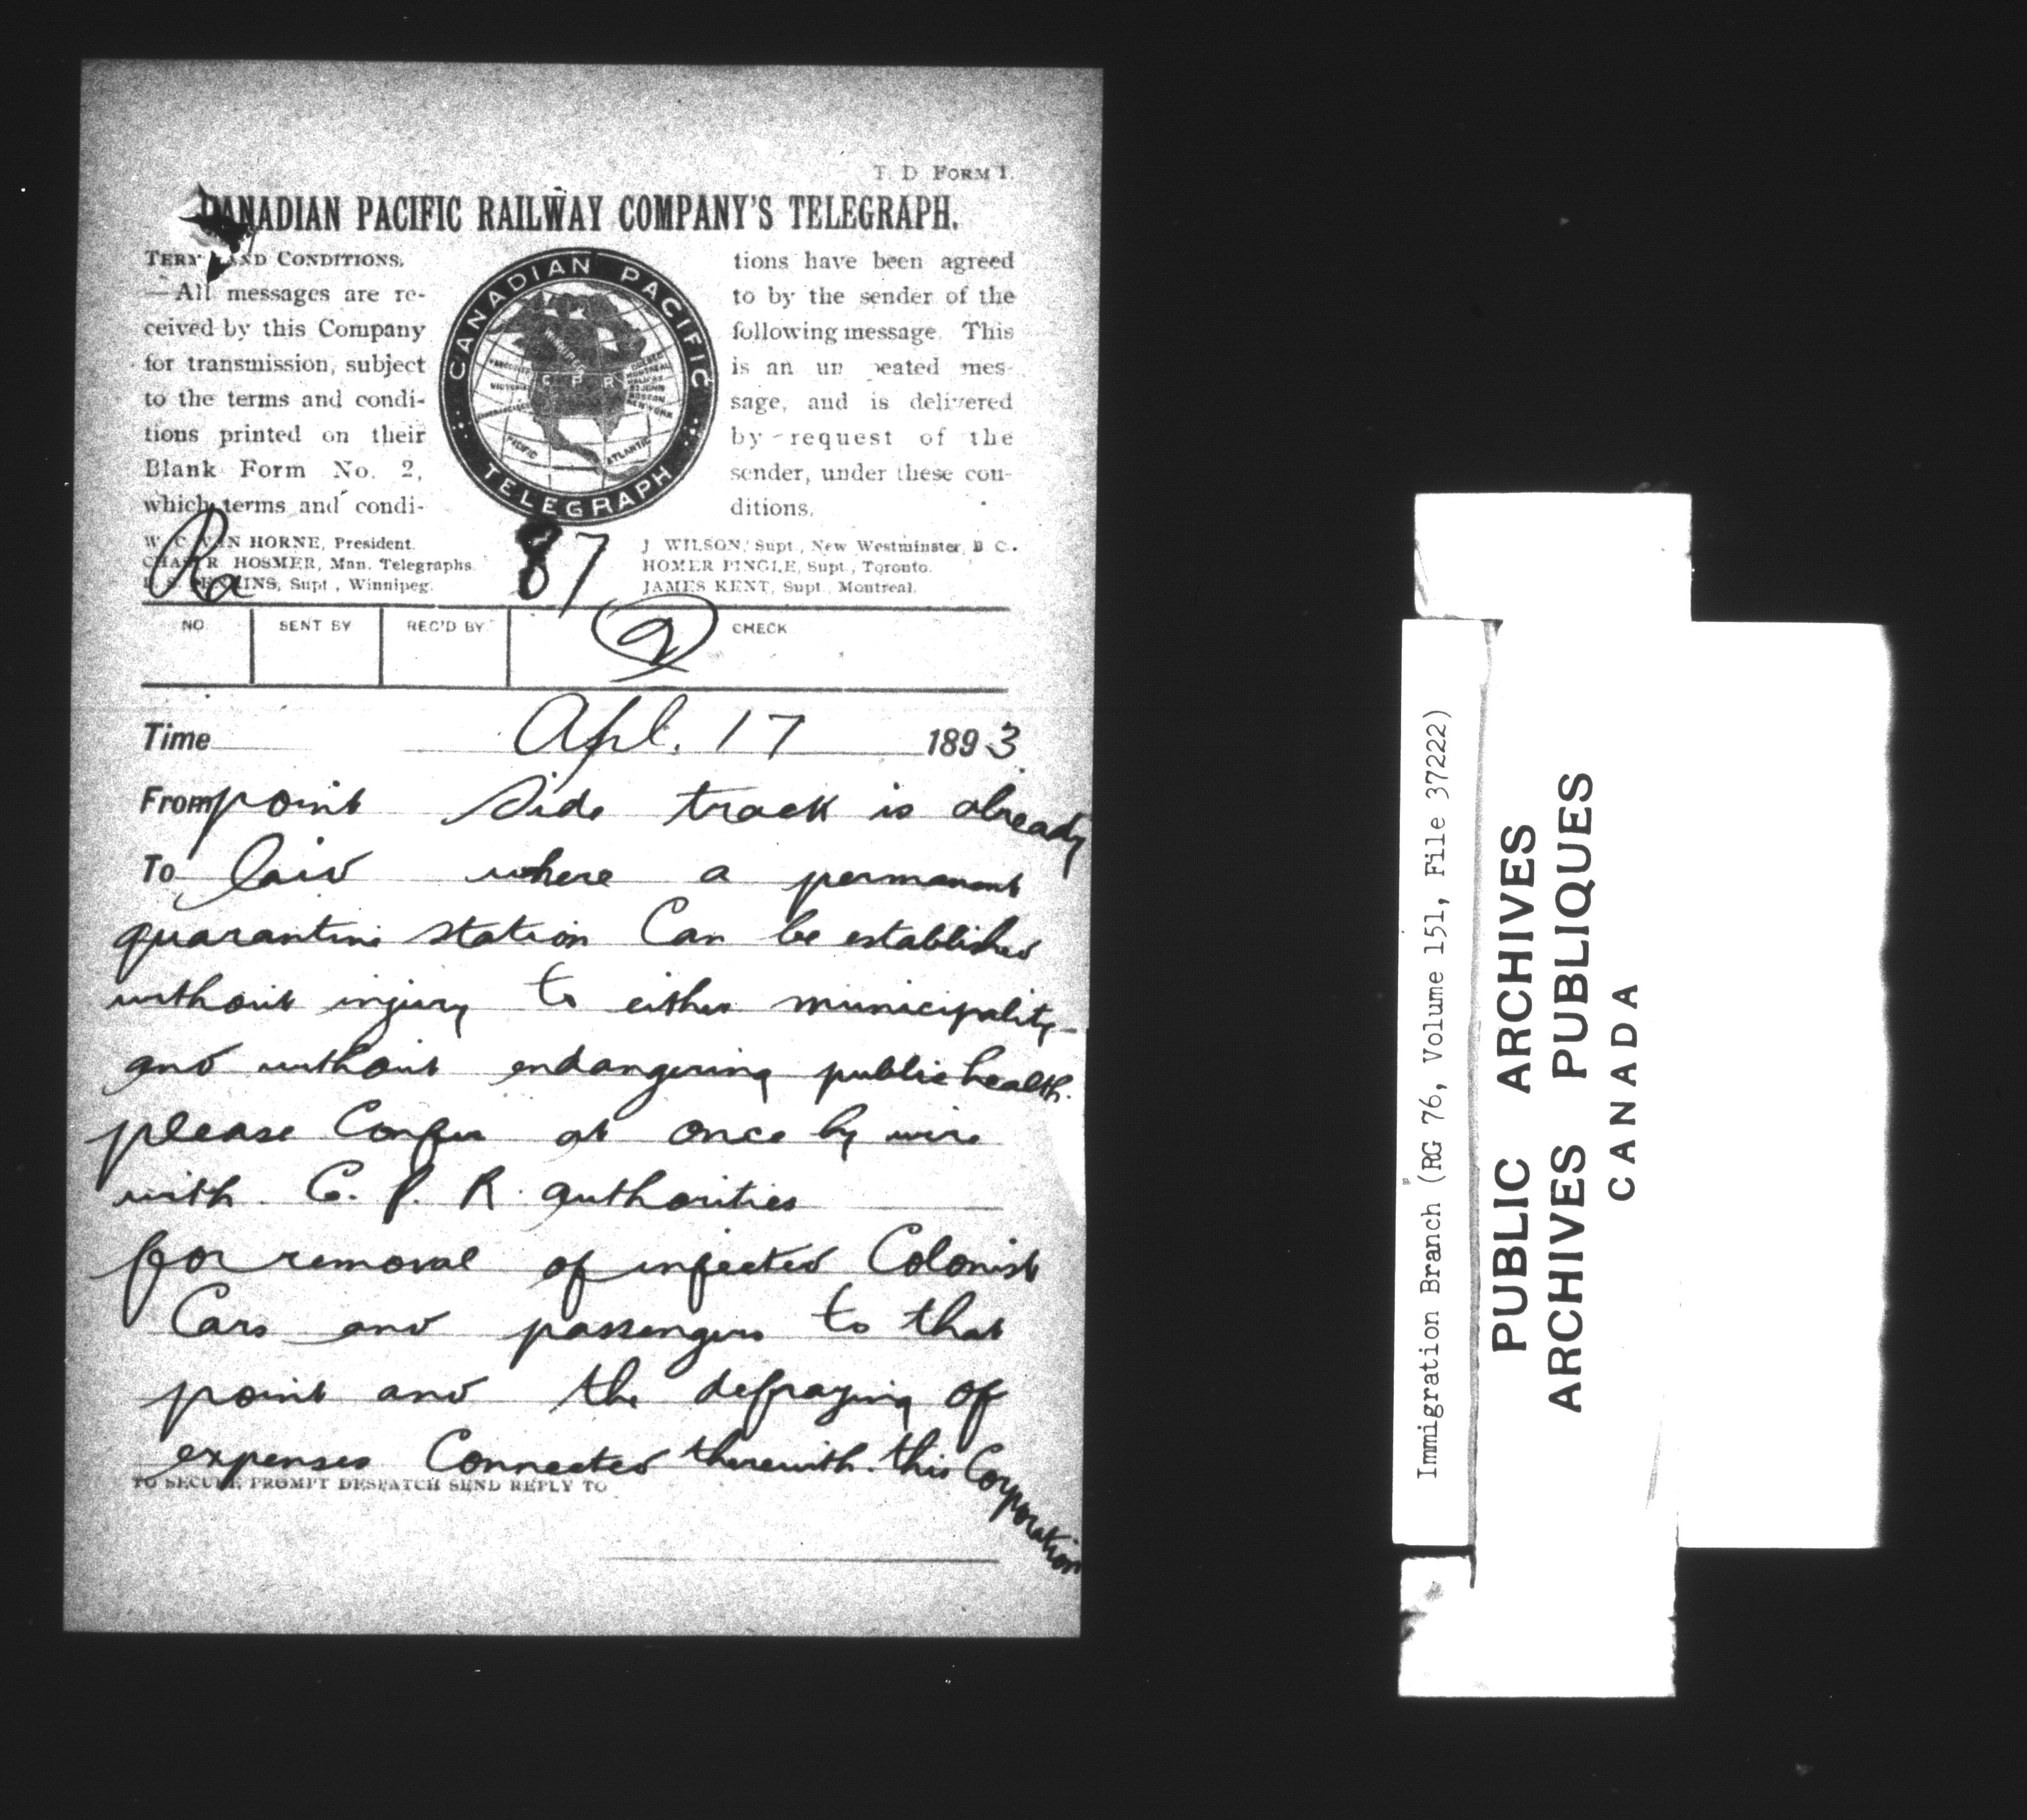 T. D. FORM 1.
CANADIAN PACIFIC RAILWAY COMPANY'S TELEGRAPH.
TERMS AND CONDITIONS.
—All messages are re-
ceived by this Company
for transmission, subject
to the terms and condi-
tions printed on their
Blank Form No. 2,
which terms and condi-
tions have been agreed
to by the sender of the
following message. This
is an unrepeated mes-
sage, and is delivered
by request of the
sender, under these con-
ditions.
CANADIAN PACIFIC
TELEGRAPH
WINNIPEG
VANCOUVER
VICTORIA
SAN FRANCISCO
C P R
QUEBEC
MONTREAL
HALIFAX
ST JOHN
BOSTON
NEW YORK
PACIFIC
ATLANTIC
W. C. VAN HORNE, President.
CHAS. R. HOSMER, Man. Telegraphs.
B. S. JENKINS, Supt., Winnipeg.
J. WILSON, Supt., New Westminster, B C.
HOMER PINGLE, Supt., Toronto.
JAMES KENT, Supt., Montreal.
Ra 87
NO. SENT BY REC'D BY CHECK
2
Time Apl. 17 1893
From point Side track is already
To laid where a permanent
quarantine station Can be established
without injury to either municipality
and without endangering public health.
please Confer at once by wire
with C. P. R. authorities
for removal of infected Colonist
Cars and passengers to that
point and the defraying of
expenses Connected therewith. this Corporation
TO SECURE PROMPT DESPATCH SEND REPLY TO
Immigration Branch (RG 76, Volume 151, File 37222)
PUBLIC ARCHIVES
ARCHIVES PUBLIQUES
CANADA